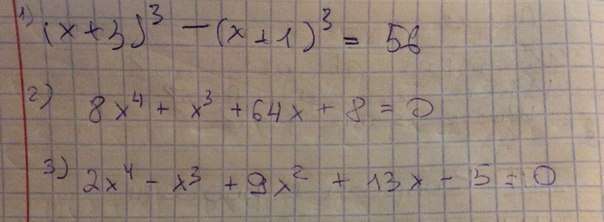 1) (x+3)³ - (x+1)³ = 56
2) 8x⁴ + x³ + 64x + 8 = 0
3) 2x⁴ - x³ + 9x² + 13x - 5 = 0